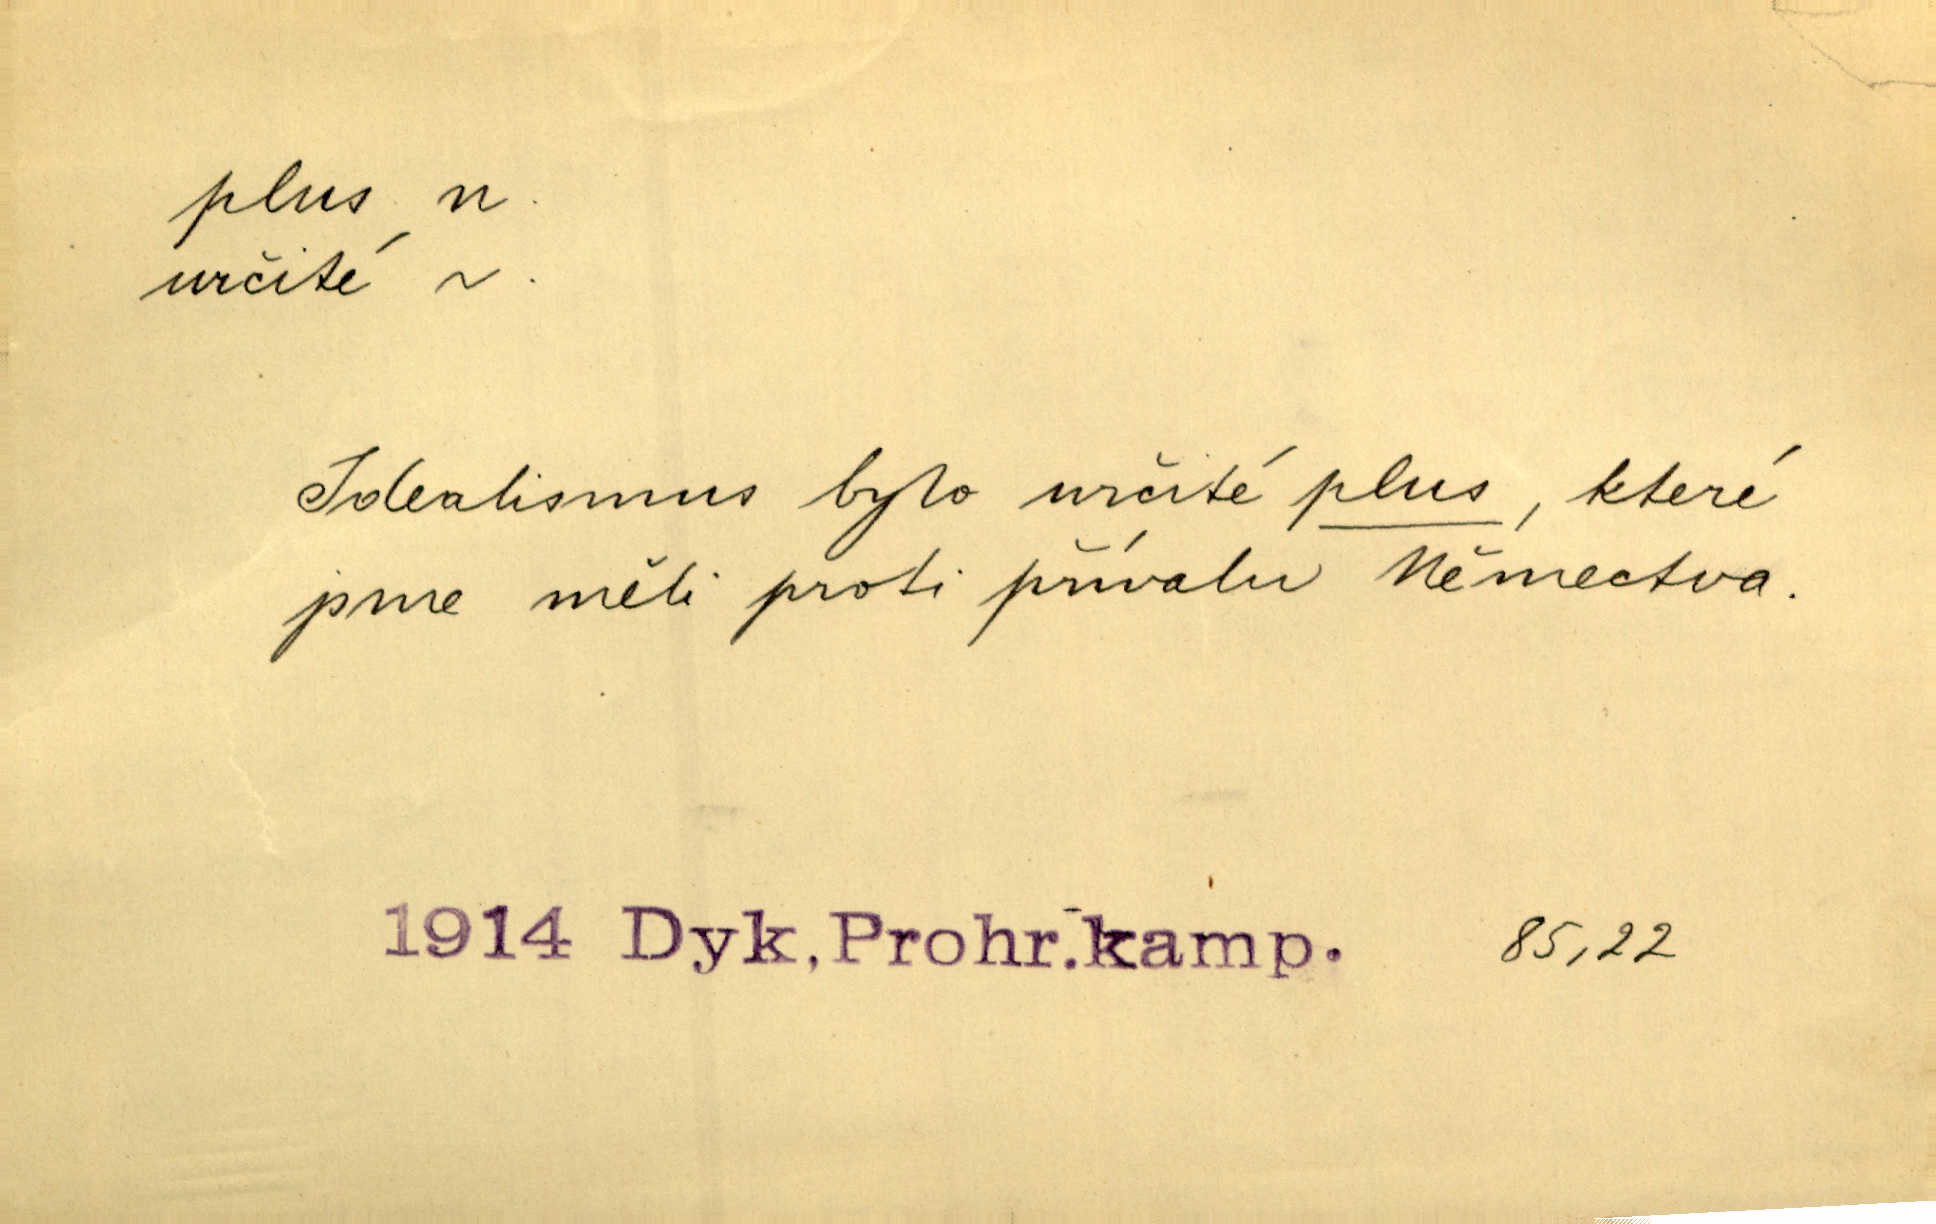 plus n.
určité ~.
Idealismus bylo určité plus, které
jsme měli proti přívalu Němectva.
1914 Dyk, Prohr. kamp. 85, 22